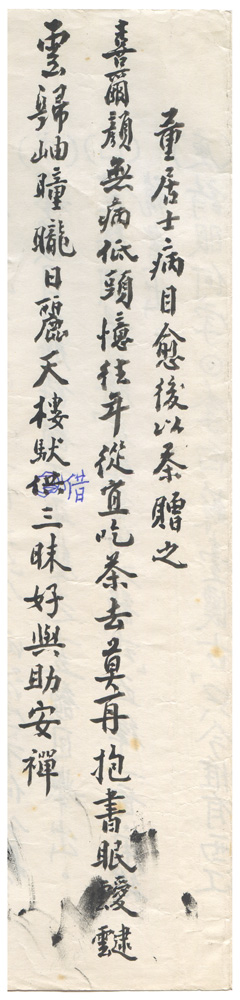 董居士病目愈後以茶贈之
喜爾顏無病低頭憶往年從宜吃茶去莫再抱書眠靉靆
雲歸岫曈曨日麗天樓馱借三昧好與助安禪